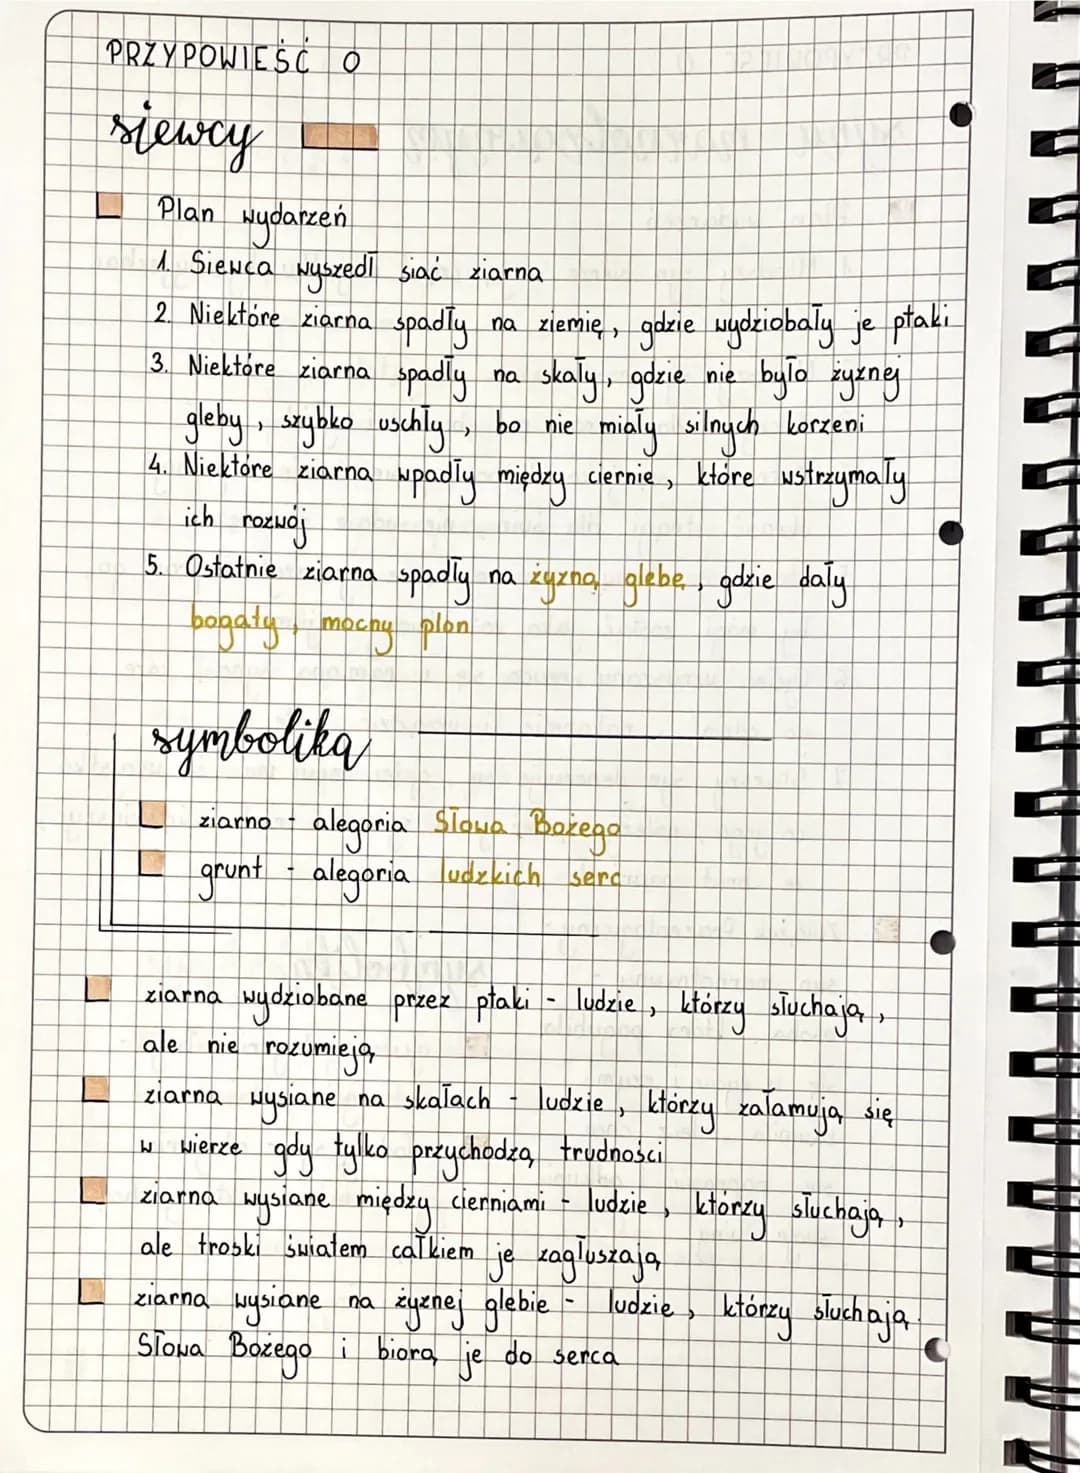 PRZYPOWIEŚĆ O
siewcy
Plan wydarzeń
1. Siewca wyszedł siać ziarna
2. Niektóre ziarna spadły na ziemię, gdzie wydziobały je ptaki
3. Niektóre ziarna spadły na skały, gdzie nie było żyznej
gleby, szybko uschły, bo nie miały silnych korzeni
4. Niektóre ziarna wpadły między ciernie, które wstrzymały
ich rozwój
5. Ostatnie ziarna spadły na żyzną glebę, gdzie dały
bogaty, mocny plon
symbolika
ziarno - alegoria Słowa Bożego
grunt - alegoria ludzkich serc
ziarna wydziobane przez ptaki - ludzie, którzy słuchają,
ale nie rozumieją
ziarna wysiane na skałach - ludzie, którzy załamują się
w wierze gdy tylko przychodzą trudności
ziarna wysiane między cierniami - ludzie, którzy słuchają,
ale troski światem całkiem je zagłuszają
ziarna wysiane na żyznej glebie - ludzie, którzy słuchają
Słowa Bożego i biorą je do serca